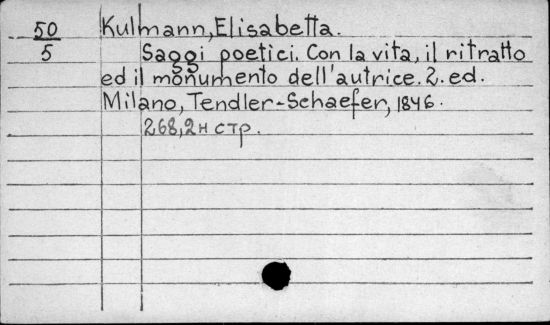 50
5
Kulmann, Elisabetta.
Saggi poetici. Con la vita, il ritratto
ed il monumento dell'autrice. 2. ed.
Milano, Tendler-Schaefer, 1846.
268, 2н стр.